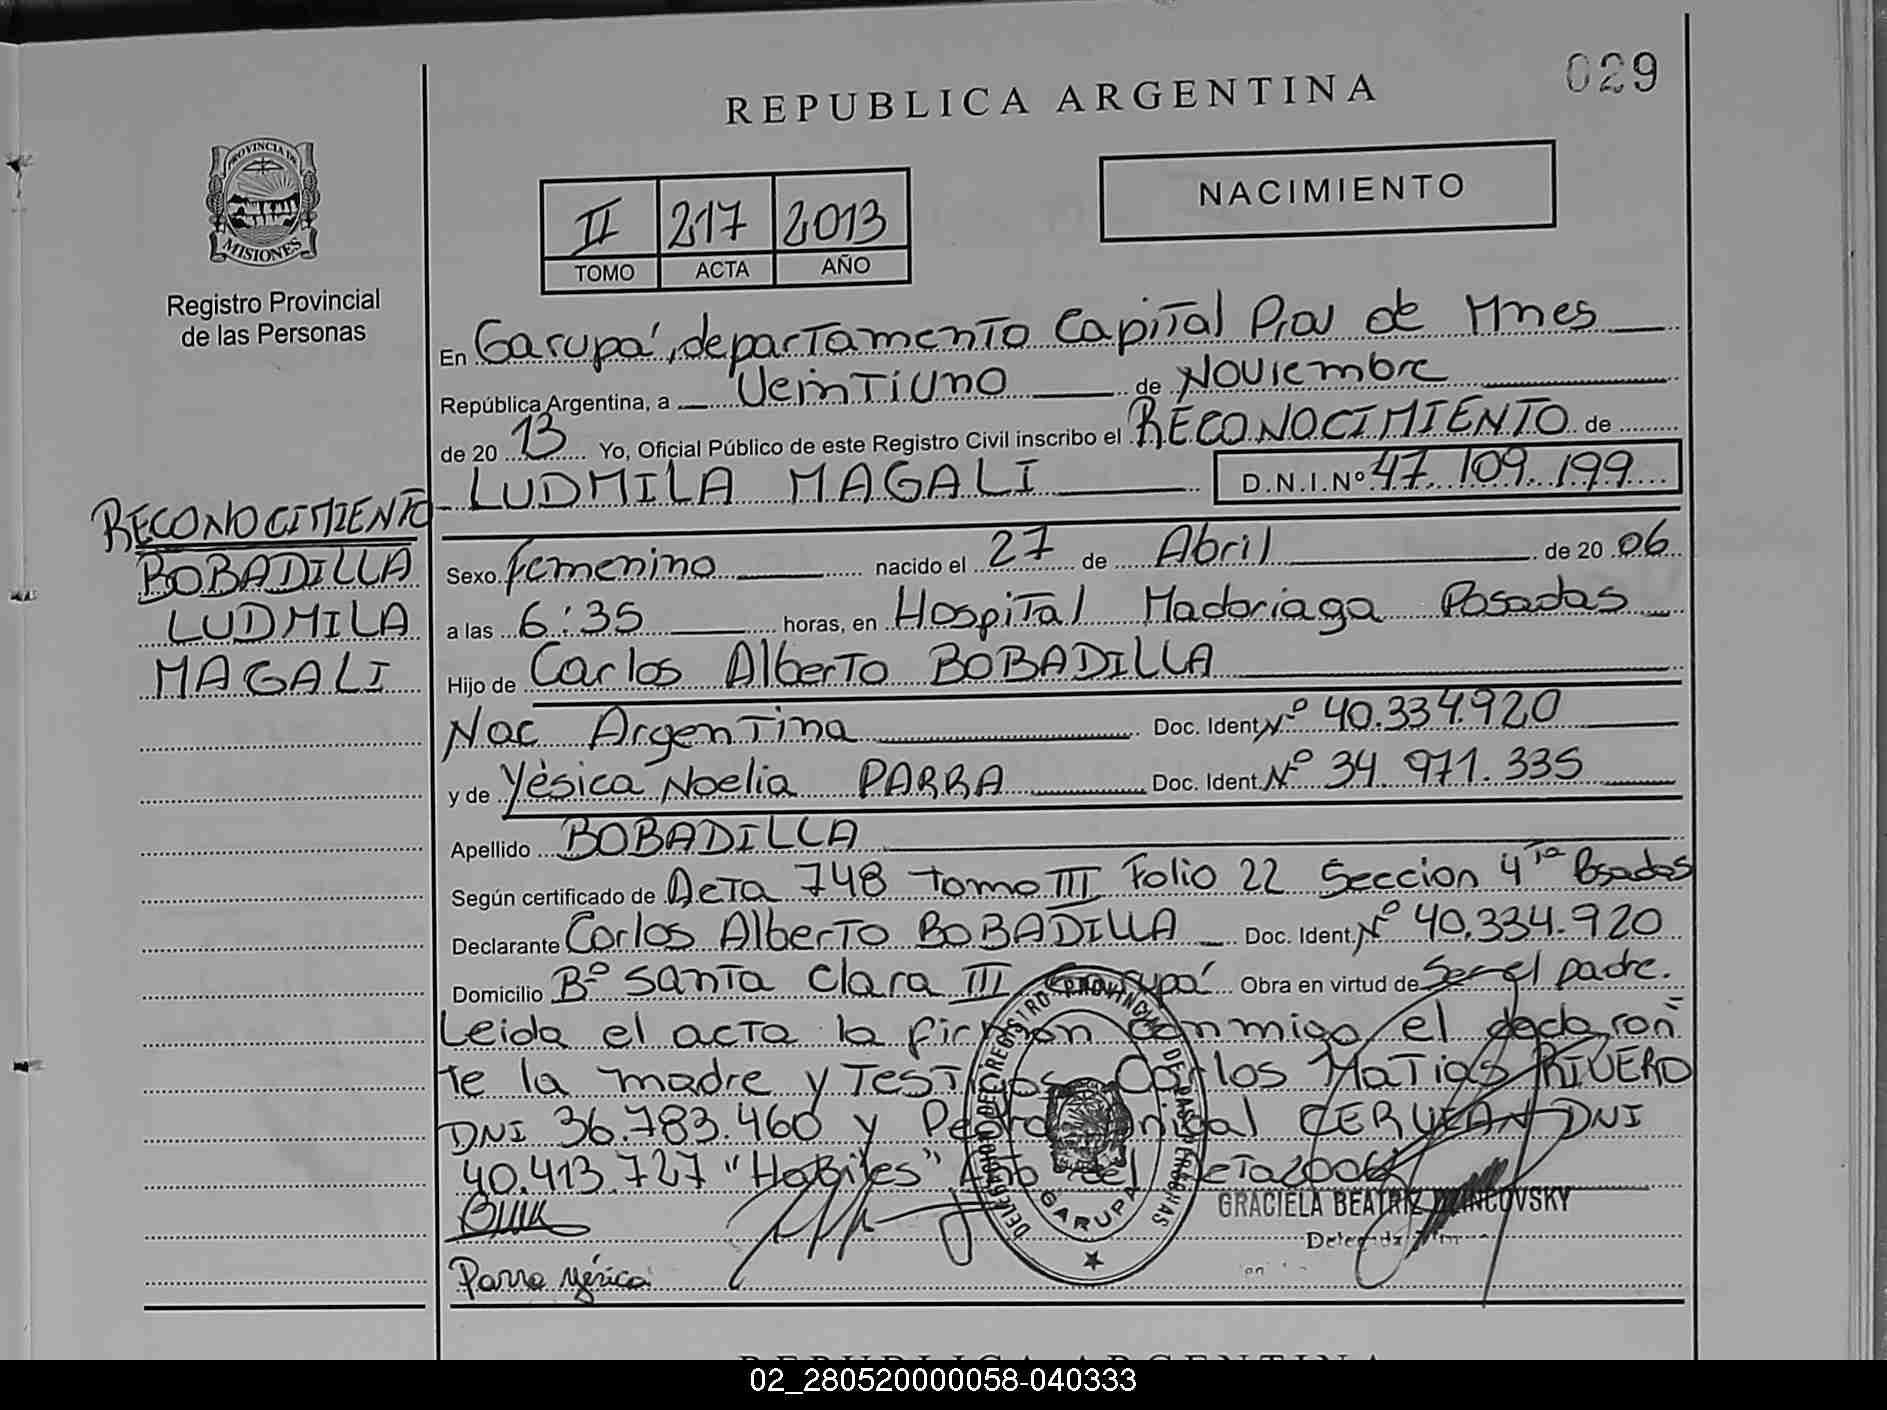 029
REPUBLICA ARGENTINA
NACIMIENTO
PROVINCIA DE
MISIONES
Registro Provincial
de las Personas
II 217 2013
TOMO ACTA AÑO
En Garupá, departamento Capital Prov de Mnes
República Argentina, a Veintiuno de Noviembre
de 2013 Yo, Oficial Público de este Registro Civil inscribo el RECONOCIMIENTO de
LUDMILA MAGALI D.N.I.Nº 47.109.199
RECONOCIMIENTO
BOBADILLA
LUDMILA
MAGALI
Sexo femenino nacido el 27 de Abril de 2006
a las 6:35 horas, en Hospital Madariaga Posadas
Hijo de Carlos Alberto BOBADILLA
Nac Argentina Doc. Ident. Nº 40.334.920
y de Yésica Noelia PARRA Doc. Ident. Nº 34.971.335
Apellido BOBADILLA
Según certificado de Acta 748 tomo III Folio 22 Seccion 4ta Posadas
Declarante Carlos Alberto BOBADILLA Doc. Ident. Nº 40.334.920
Domicilio Bº Santa Clara III Garupá Obra en virtud de Ser el padre.
Leida el acta la firman conmigo el declaran=
te la madre y Testigos Carlos Matias RIVERO
DNI 36.783.460 y Pedro DNI
40.413.727 "Habiles"
DELEGACION DEL REGISTRO PROVINCIAL DE LAS PERSONAS
GARUPA
GRACIELA BEATRIZ
Parra Yésica
REPUBLICA ARGENTINA
02_280520000058-040333